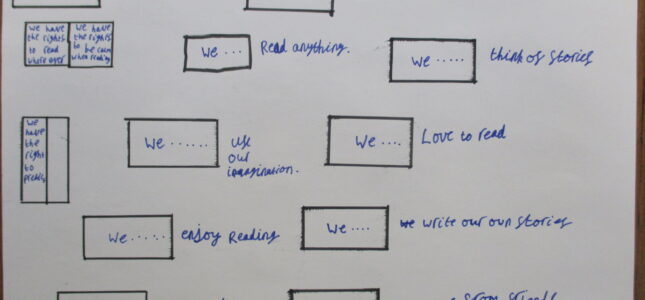 we have
the rights
to read
where ever
we have
the rights
to be calm
when reading
we ...
Read anything.
we .....
think of stories
we
have
the
right
to
we ......
use
our
imagination.
we ....
Love to read
we .....
enjoy Reading
we ....
we write our own stories
from